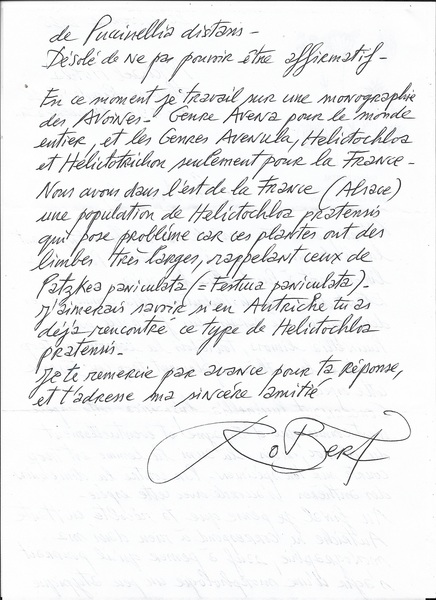 de Puccinellia distans -
Désolé de ne par pouvoir être affirmatif -
En ce moment je travail sur une monographie
des Avoines - Genre Avena pour le monde
entier, et les Genres Avenula, Helictochloa
et Helictotrichon seulement pour la France -
Nous avons dans l'est de la France (Alsace)
une population de Helictochloa pratensis
qui pose problème car ces plantes ont des
limbes très larges, rappelant ceux de
Patzkea paniculata (= Festuca paniculata) -
J'aimerais savoir si en Autriche tu as
déjà rencontré ce type de Helictochloa
pratensis -
Je te remercie par avance pour ta réponse,
et t'adresse ma sincère amitié
RoBert